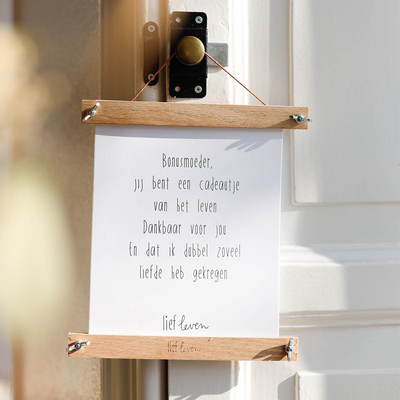 Bonusmoeder,
jij bent een cadeautje
van het leven
Dankbaar voor jou
En dat ik dubbel zoveel
liefde heb gekregen
lief leven
lief leven